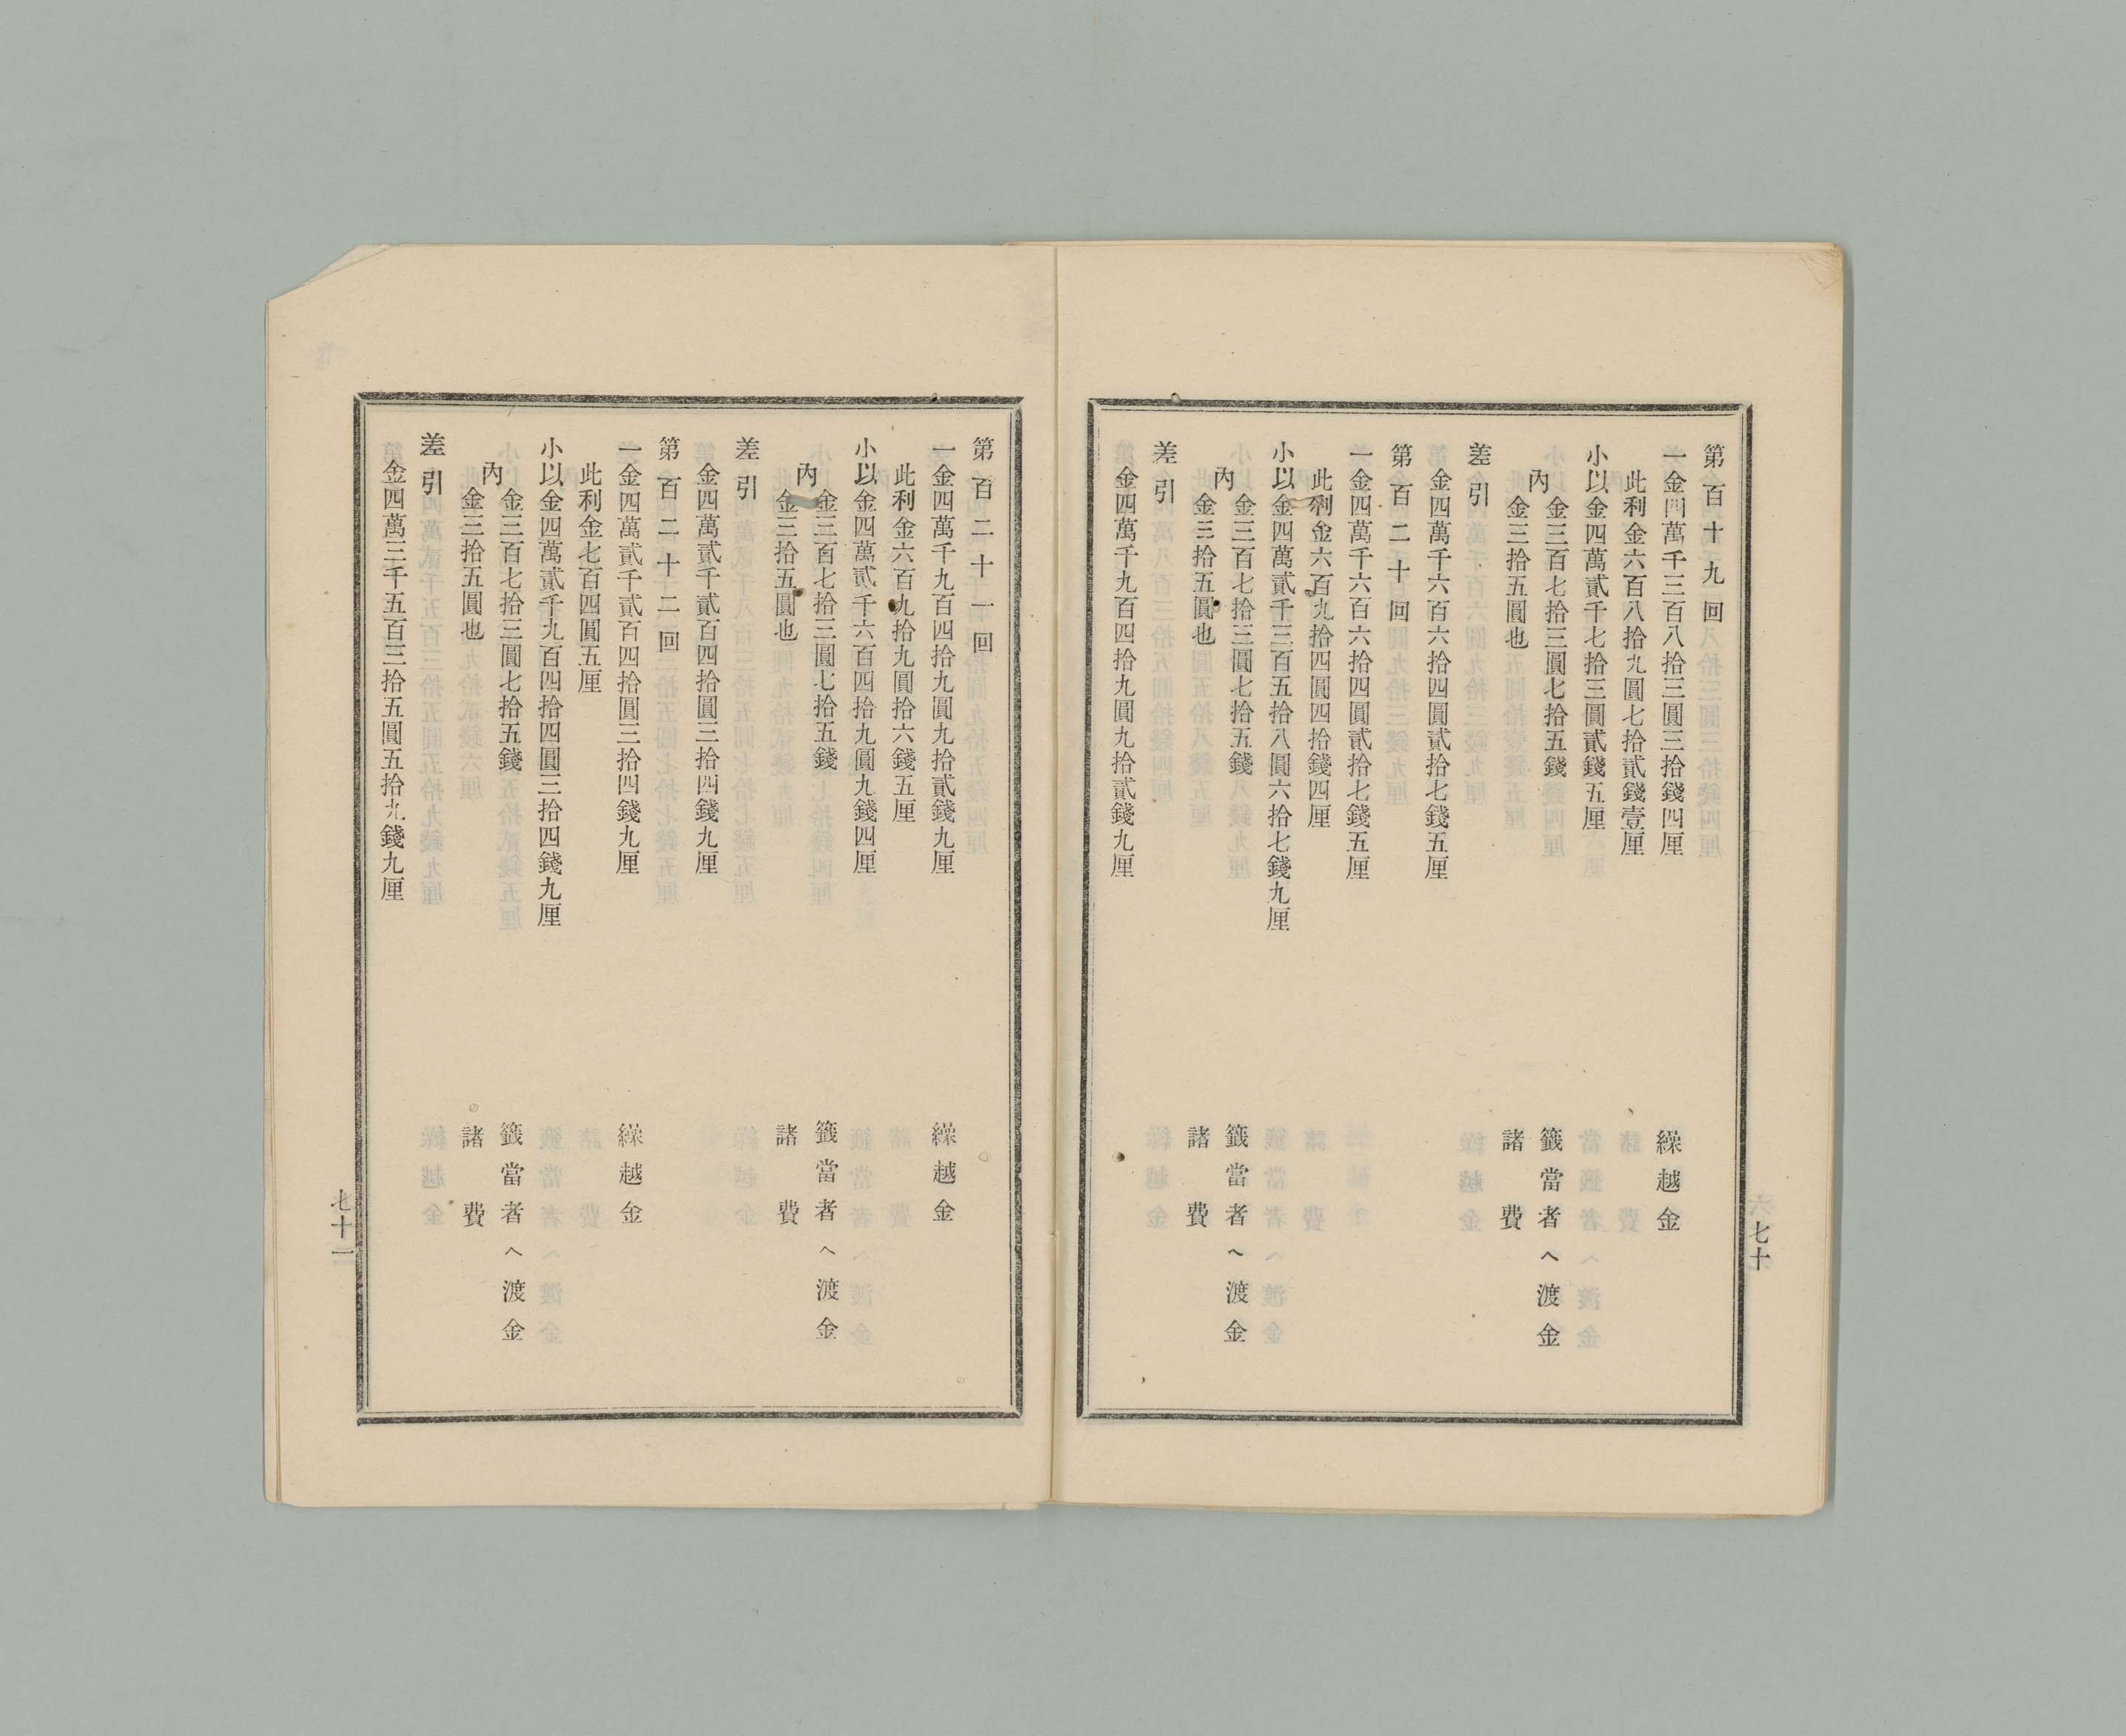 第百十九回
一金四萬千三百八拾三圓三拾錢四厘　繰越金
此利金六百八拾九圓七拾貳錢壹厘
小以金四萬貳千七拾三圓貳錢五厘
內
金三百七拾三圓七拾五錢　籤當者へ渡金
金三拾五圓也　諸費
差引
金四萬千六百六拾四圓貳拾七錢五厘
第百二十回
一金四萬千六百六拾四圓貳拾七錢五厘
此利金六百九拾四圓四拾錢四厘
小以金四萬貳千三百五拾八圓六拾七錢九厘
內
金三百七拾三圓七拾五錢　籤當者へ渡金
金三拾五圓也　諸費
差引
金四萬千九百四拾九圓九拾貳錢九厘
七十
第百二十一回
一金四萬千九百四拾九圓九拾貳錢九厘　繰越金
此利金六百九拾九圓拾六錢五厘
小以金四萬貳千六百四拾九圓九錢四厘
內
金三百七拾三圓七拾五錢　籤當者へ渡金
金三拾五圓也　諸費
差引
金四萬貳千貳百四拾圓三拾四錢九厘
第百二十二回
一金四萬貳千貳百四拾圓三拾四錢九厘　繰越金
此利金七百四圓五厘
小以金四萬貳千九百四拾四圓三拾四錢九厘
內
金三百七拾三圓七拾五錢　籤當者へ渡金
金三拾五圓也　諸費
差引
金四萬三千五百三拾五圓五拾九錢九厘
七十一